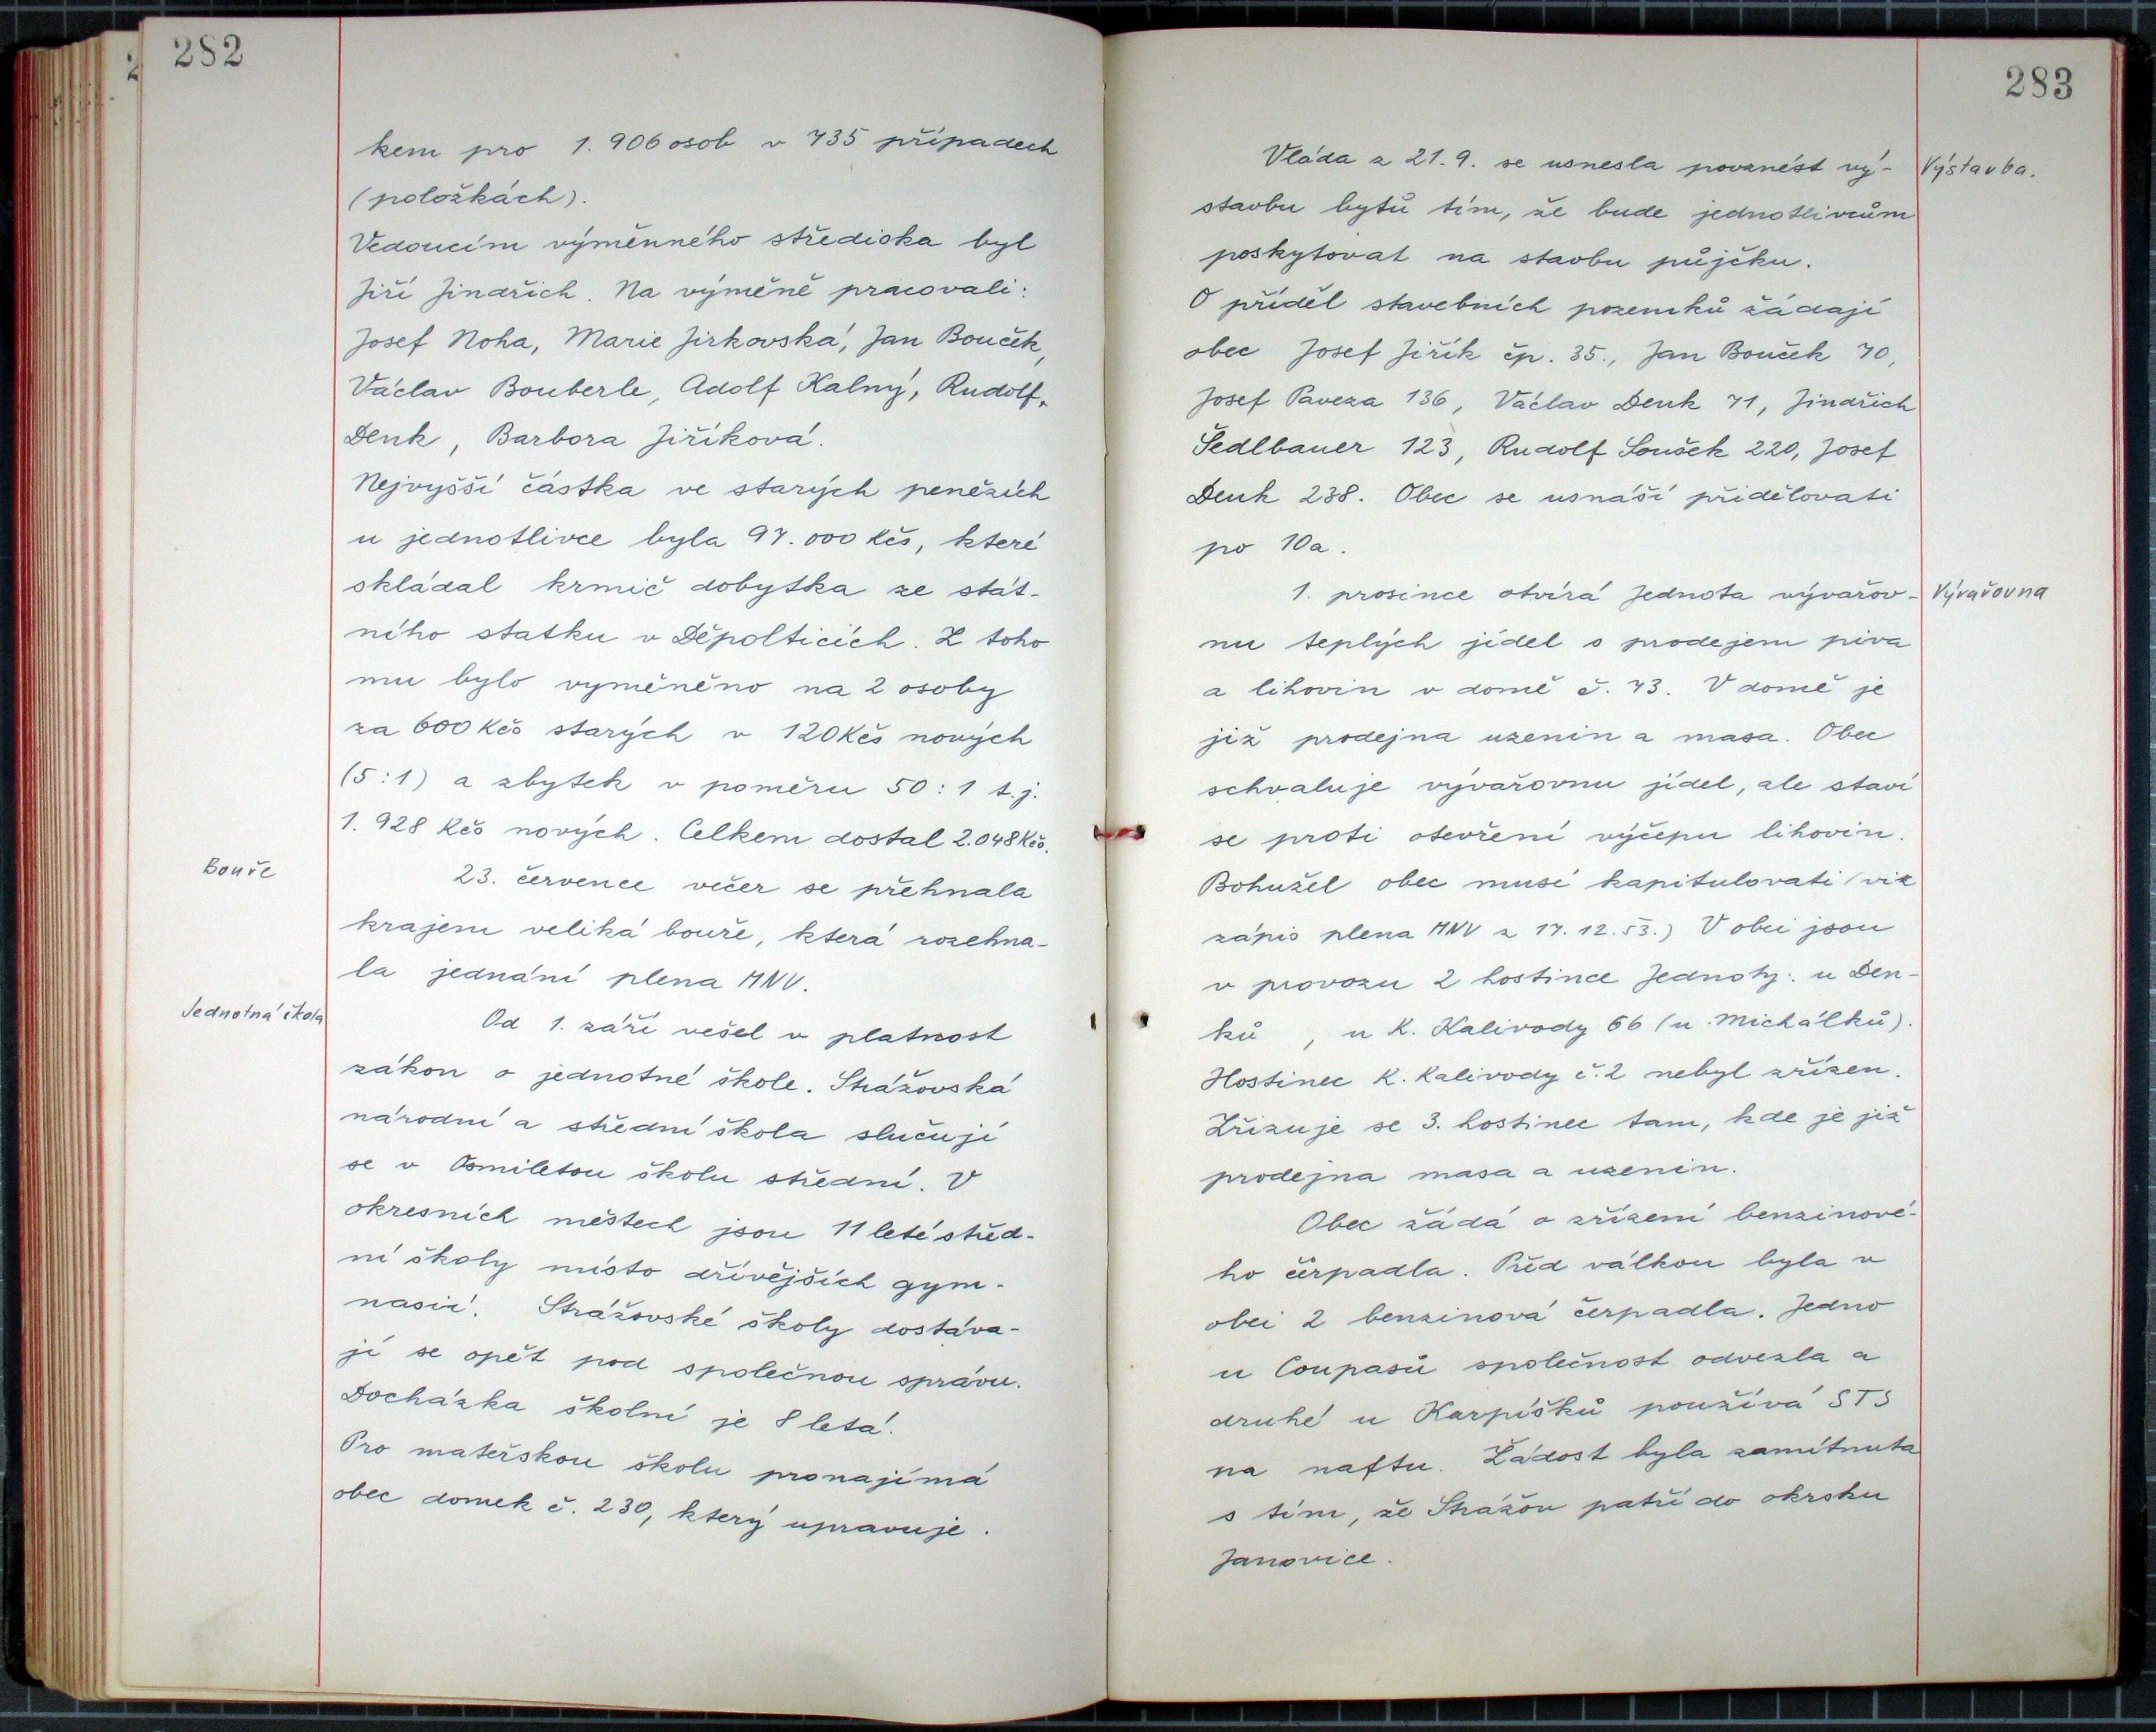 282
kem pro 1.906 osob v 735 případech
(položkách).
Vedoucím výměnného střediska byl
Jiří Jindřich. Na výměně pracovali:
Josef Noha, Marie Jirkovská, Jan Bouček,
Václav Bouberle, Adolf Kalný, Rudolf
Denk, Barbora Jiříková.
Nejvyšší částka ve starých penězích
u jednotlivce byla 97.000 Kčs, které
skládal krmič dobytka ze stát-
ního statku v Děpolticích. Z toho
mu bylo vyměněno na 2 osoby
za 600 Kčs starých v 120 Kčs nových
(5:1) a zbytek v poměru 50:1 t.j.
1.928 Kčs nových. Celkem dostal 2.048 Kčs.
Bouře
23. července večer se přehnala
krajem veliká bouře, která rozehna-
la jednání plena MNV.
Jednotná škola
Od 1. září vešel v platnost
zákon o jednotné škole. Strážovská
národní a střední škola slučují
se v Osmiletou školu střední. V
okresních městech jsou 11 leté střed-
ní školy místo dřívějších gym-
nasií. Strážovské školy dostáva-
jí se opět pod společnou správu.
Docházka školní je 8 letá.
Pro mateřskou školu pronajímá
obec domek č. 230, který upravuje.
283
Vláda z 21.9. se usnesla povznést vý-
Výstavba.
stavbu bytů tím, že bude jednotlivcům
poskytovat na stavbu půjčku.
O příděl stavebních pozemků žádají
obec Josef Jiřík čp. 35., Jan Bouček 70,
Josef Paveza 136, Václav Denk 71, Jindřich
Šedlbauer 123, Rudolf Soušek 220, Josef
Denk 238. Obec se usnáší přidělovati
po 10a.
1. prosince otvírá Jednota vývařov-
Vývařovna
nu teplých jídel s prodejem piva
a lihovin v domě č. 73. V domě je
již prodejna uzenin a masa. Obec
schvaluje vývařovnu jídel, ale staví
se proti otevření výčepu lihovin.
Bohužel obec musí kapitulovati (viz
zápis plena MNV z 17.12.53.) V obci jsou
v provozu 2 hostince Jednoty: u Den-
ků , u K. Kalivody 66 (u Michálků).
Hostinec K. Kalivody č.2 nebyl zřízen.
Zřizuje se 3. hostinec tam, kde je již
prodejna masa a uzenin.
Obec žádá o zřízení benzinové-
ho čerpadla. Před válkou byla v
obci 2 benzinová čerpadla. Jedno
u Coupasů společnost odvezla a
druhé u Karpíšků používá STS
na naftu. Žádost byla zamítnuta
s tím, že Strážov patří do okrsku
Janovice.